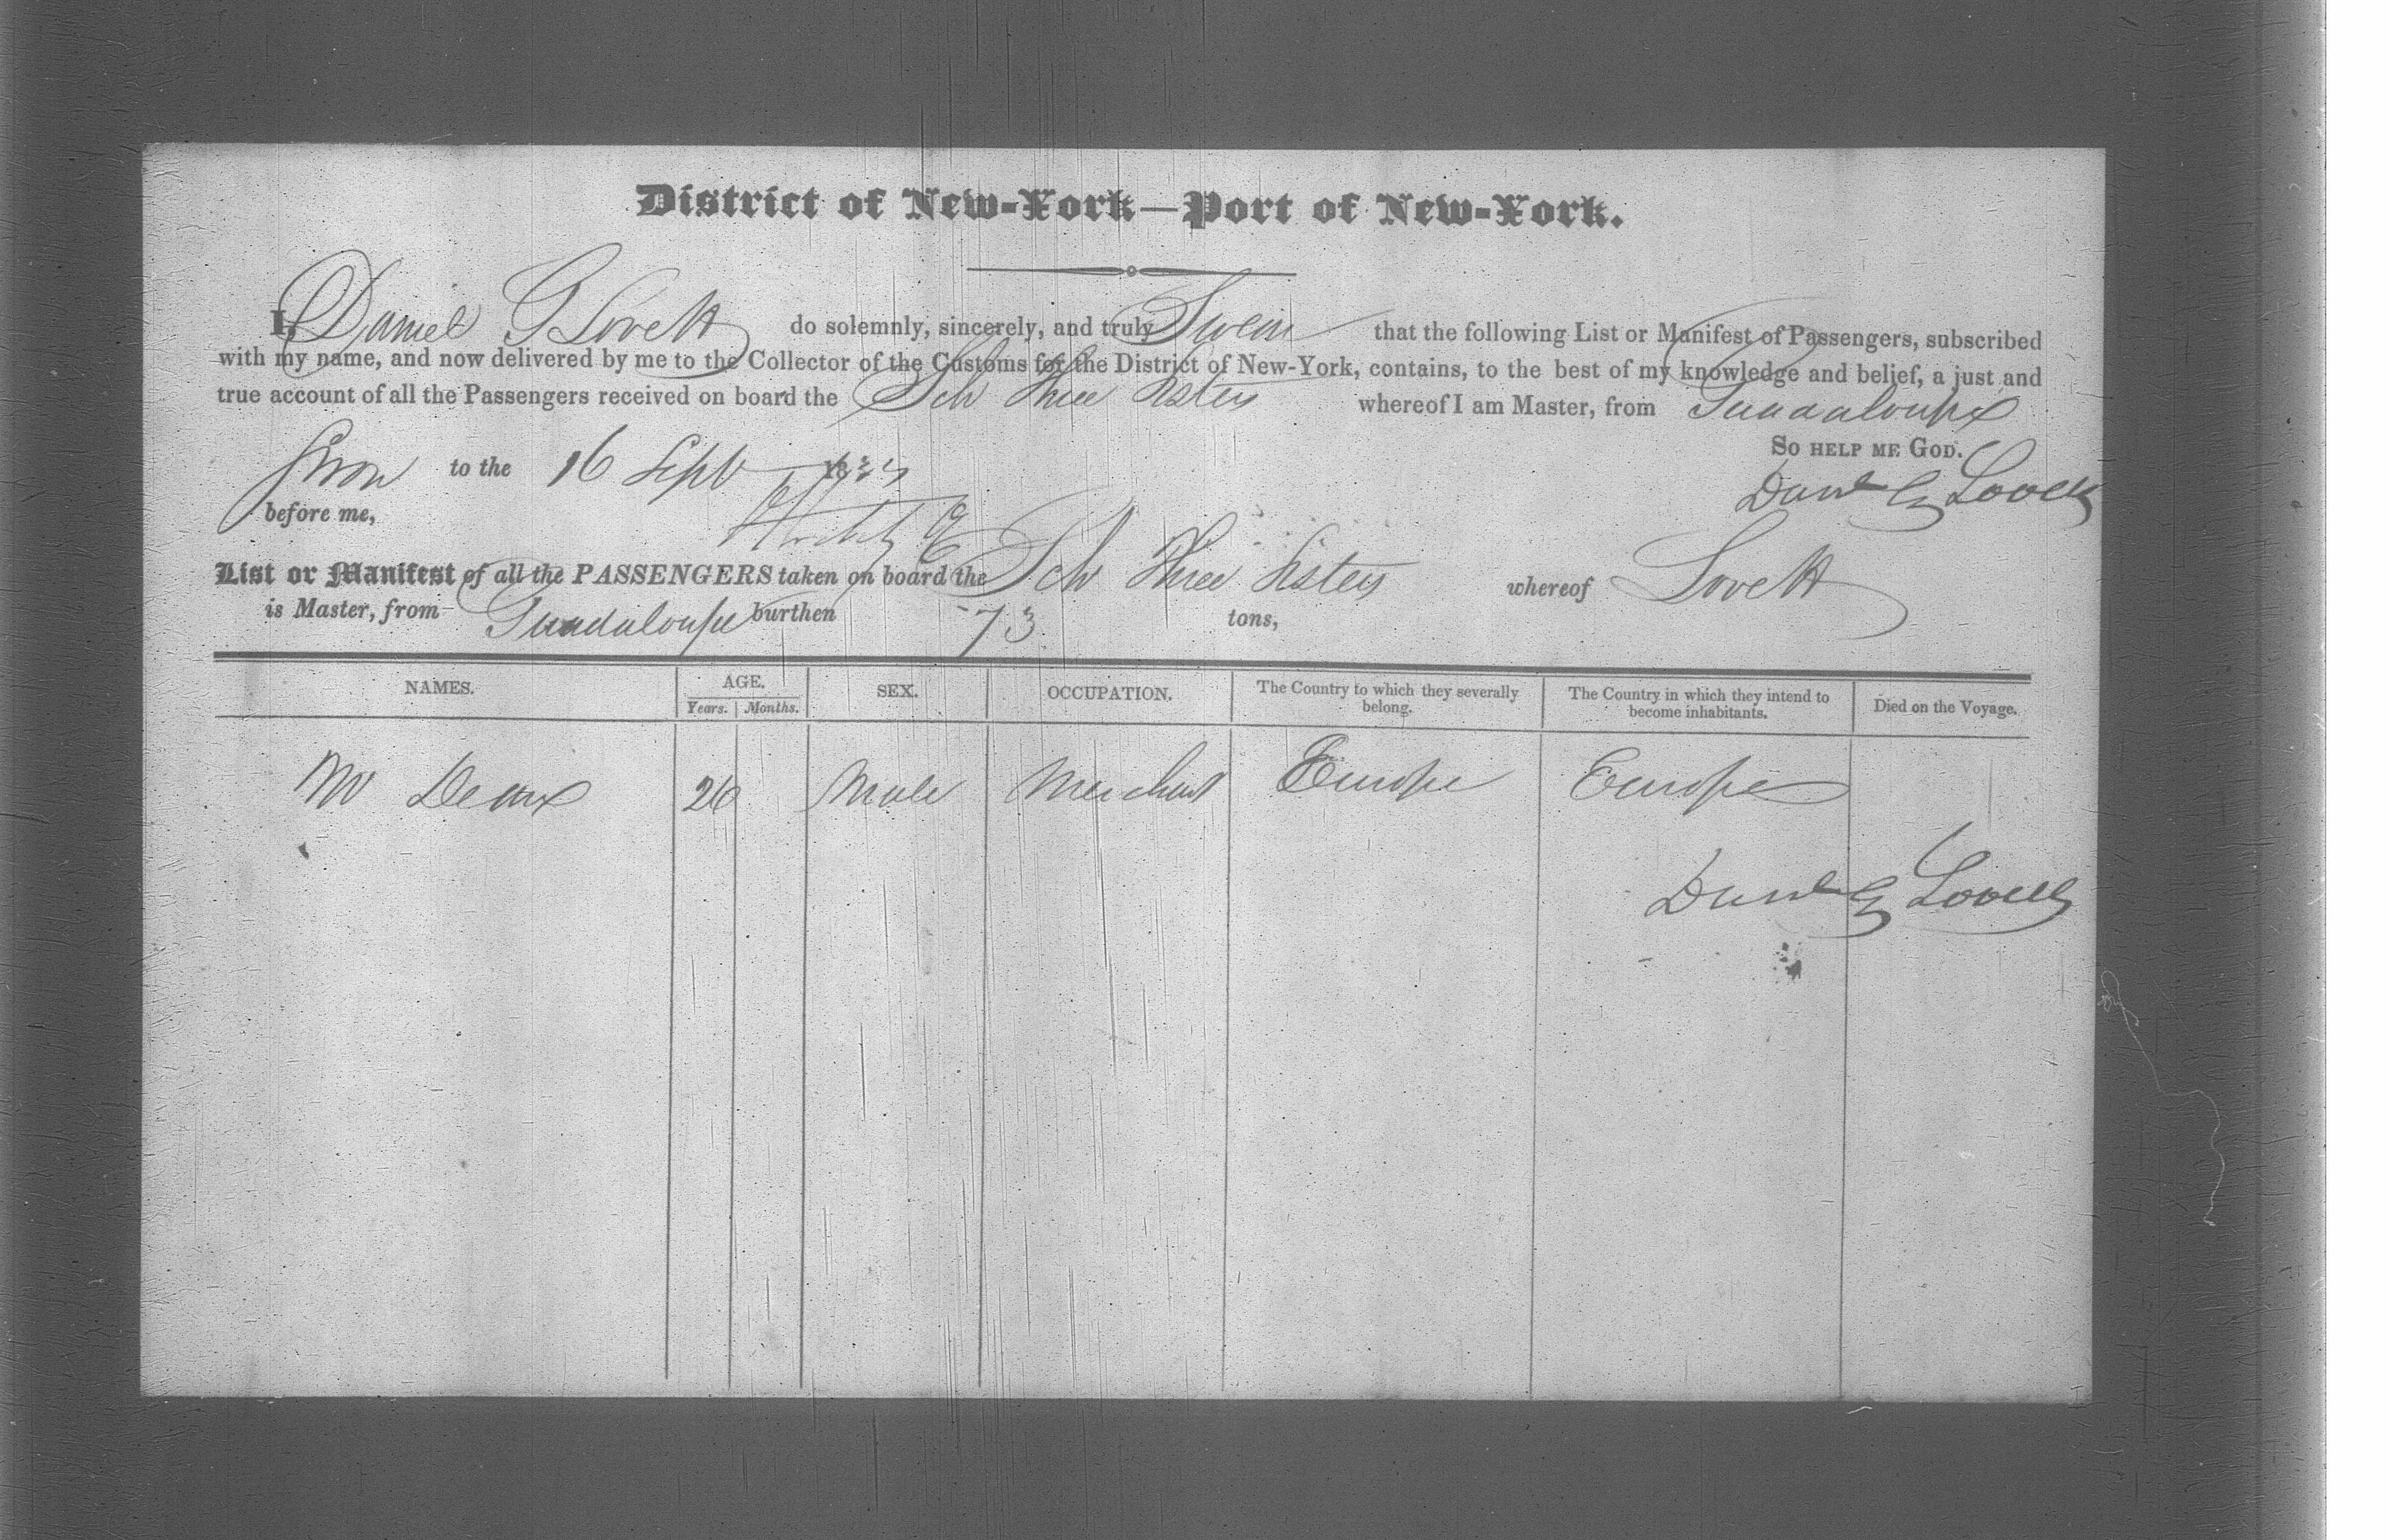 District of New-York—Port of New-York.
I, Daniel G Lovett do solemnly, sincerely, and truly Swear that the following List or Manifest of Passengers, subscribed
with my name, and now delivered by me to the Collector of the Customs for the District of New-York, contains, to the best of my knowledge and belief, a just and
true account of all the Passengers received on board the Sch Three Sisters whereof I am Master, from Guadaloupe
So help me God.
Sworn to the 16 Sept 18
Danl G Lovett
before me,
List or Manifest of all the PASSENGERS taken on board the Sch Three Sisters whereof Lovett
is Master, from Guadaloupe burthen 73 tons,
NAMES. AGE. SEX. OCCUPATION. The Country to which they severally belong. The Country in which they intend to become inhabitants. Died on the Voyage.
Years. Months.
Mr 26 Male Merchant Europe Europe
Danl G Lovett